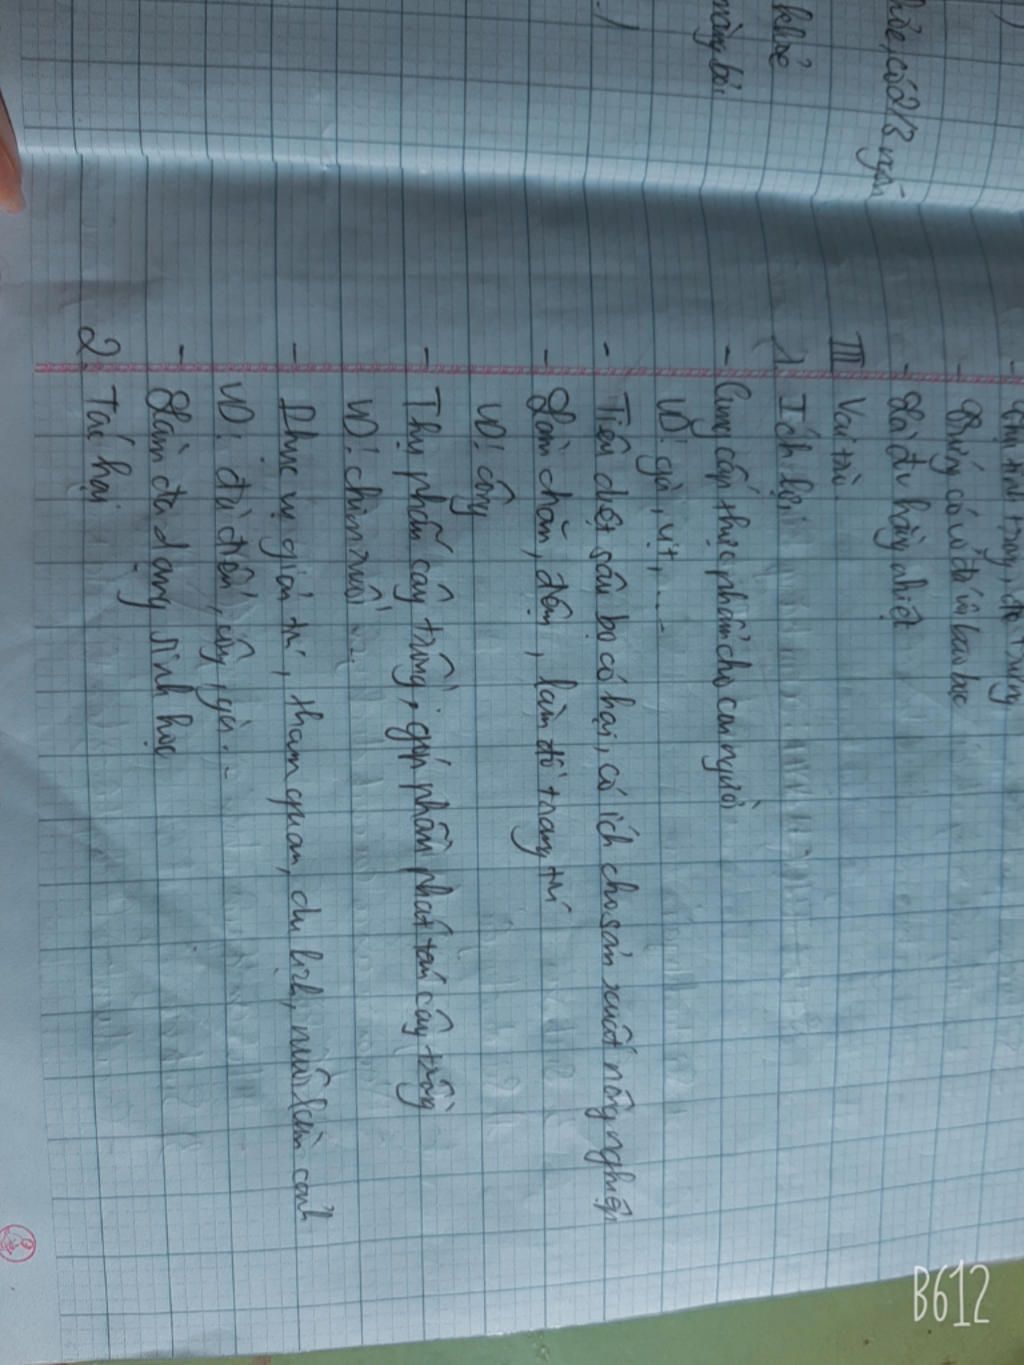 khỏe, có 2/3 ngón
khỏe
màng bơi
- thụ tinh trong, đẻ trứng
- trứng có vỏ đá vôi bao bọc
- Là đv hằng nhiệt
III Vai trò.
1. Ích lợi
- Cung cấp thực phẩm cho con người
VD: gà, vịt, ...
- Tiêu diệt sâu bọ có hại, có ích cho sản xuất nông nghiệp
- Làm chăn, đệm, làm đồ trang trí
VD: công
- Thụ phấn cây trồng, góp phần phát tán cây trồng
VD: chim ruồi ...
- Phục vụ giải trí, tham quan, du lịch, nuôi làm cảnh
VD: đà điểu, công, gà...
- Làm đa dạng sinh học
2. Tác hại
B612